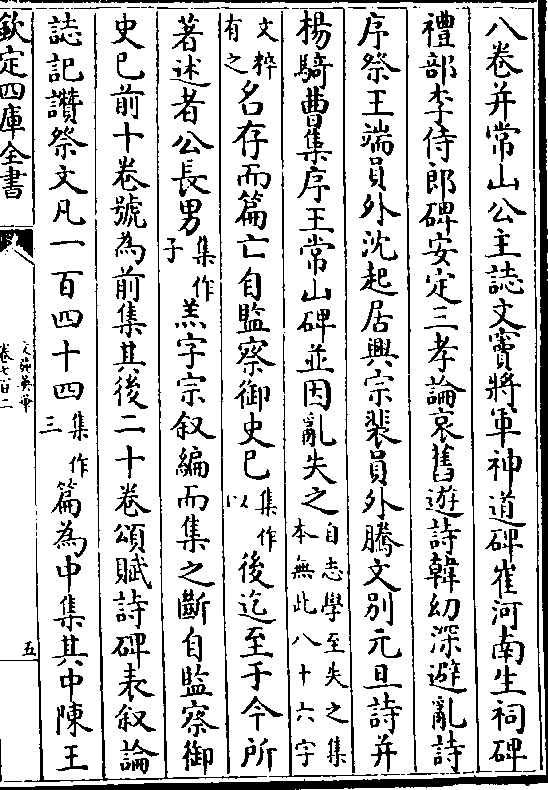 八卷并常山公主誌文竇將軍神道碑崔河南生祠碑
禮部李侍郎碑安定三孝論哀舊遊詩韓幼深避亂詩
序祭王端員外沈起居興宗裴員外騰文别元旦詩并
楊騎曹集序王常山碑並因亂失之自志學至失之集本無此八十六字
文粹有之名存而篇亡自監察御史已集作以後迄至于今所
著述者公長男集作子羔字宗叙編而集之斷自監察御
史已前十卷號為前集其後二十卷頌賦詩碑表叙論
誌記讚祭文凡一百四十四集作三篇為中集其中陳王
欽定四庫全書
文苑英華
卷七百二
五